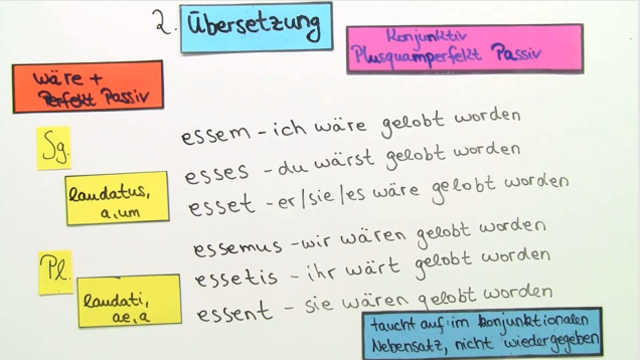 2. Übersetzung
Konjunktiv
Plusquamperfekt Passiv
wäre +
Perfekt Passiv
Sg.
laudatus,
a, um
essem - ich wäre gelobt worden
esses - du wärst gelobt worden
esset - er/sie/es wäre gelobt worden
Pl.
laudati,
ae, a
essemus - wir wären gelobt worden
essetis - ihr wärt gelobt worden
essent - sie wären gelobt worden
taucht auf: im konjunktionalen
Nebensatz, nicht wiedergegeben